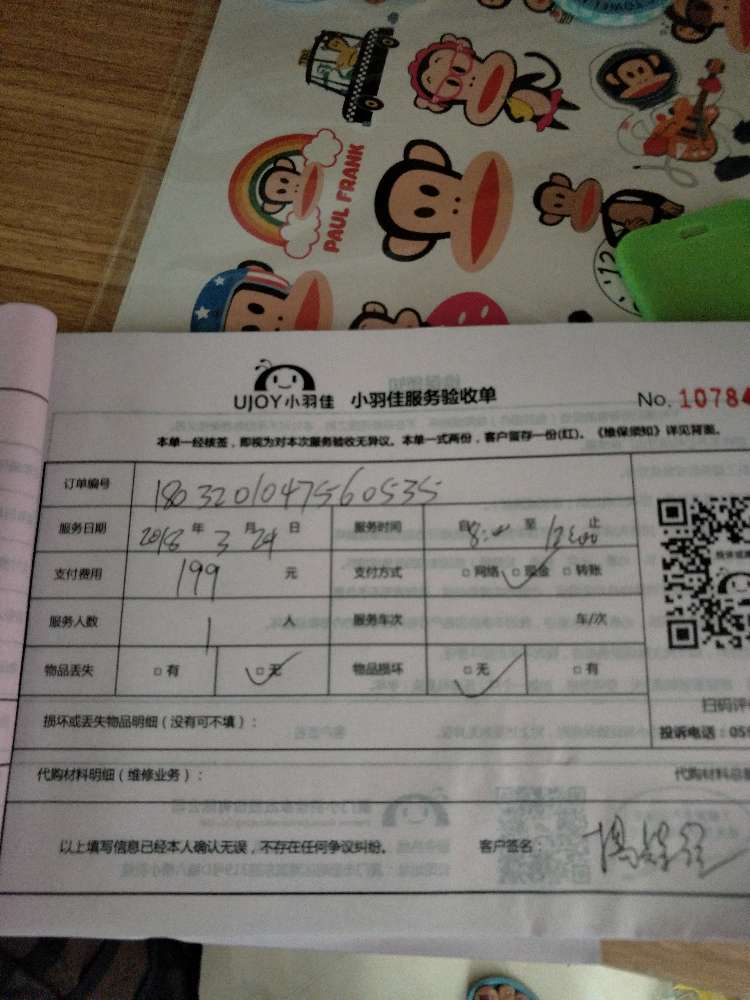 PAUL FRANK
UJOY小羽佳 小羽佳服务验收单 No. 10784
本单一经核签，即视为对本次服务验收无异议。本单一式两份，客户留存一份(红)。《维保须知》详见背面。
订单编号 180320104756053S
服务日期 2018 年 3 月 24 日 服务时间 自 8:00 至 12:00 止
支付费用 199 元 支付方式 □网络 □现金 □转账
服务人数 1 人 服务车次 车/次
物品丢失 □有 □无 物品损坏 □无 □有
扫码评
损坏或丢失物品明细（没有可不填）： 投诉电话：059
代购材料明细（维修业务）： 代购材料总
以上填写信息已经本人确认无误，不存在任何争议纠纷。 客户签名：